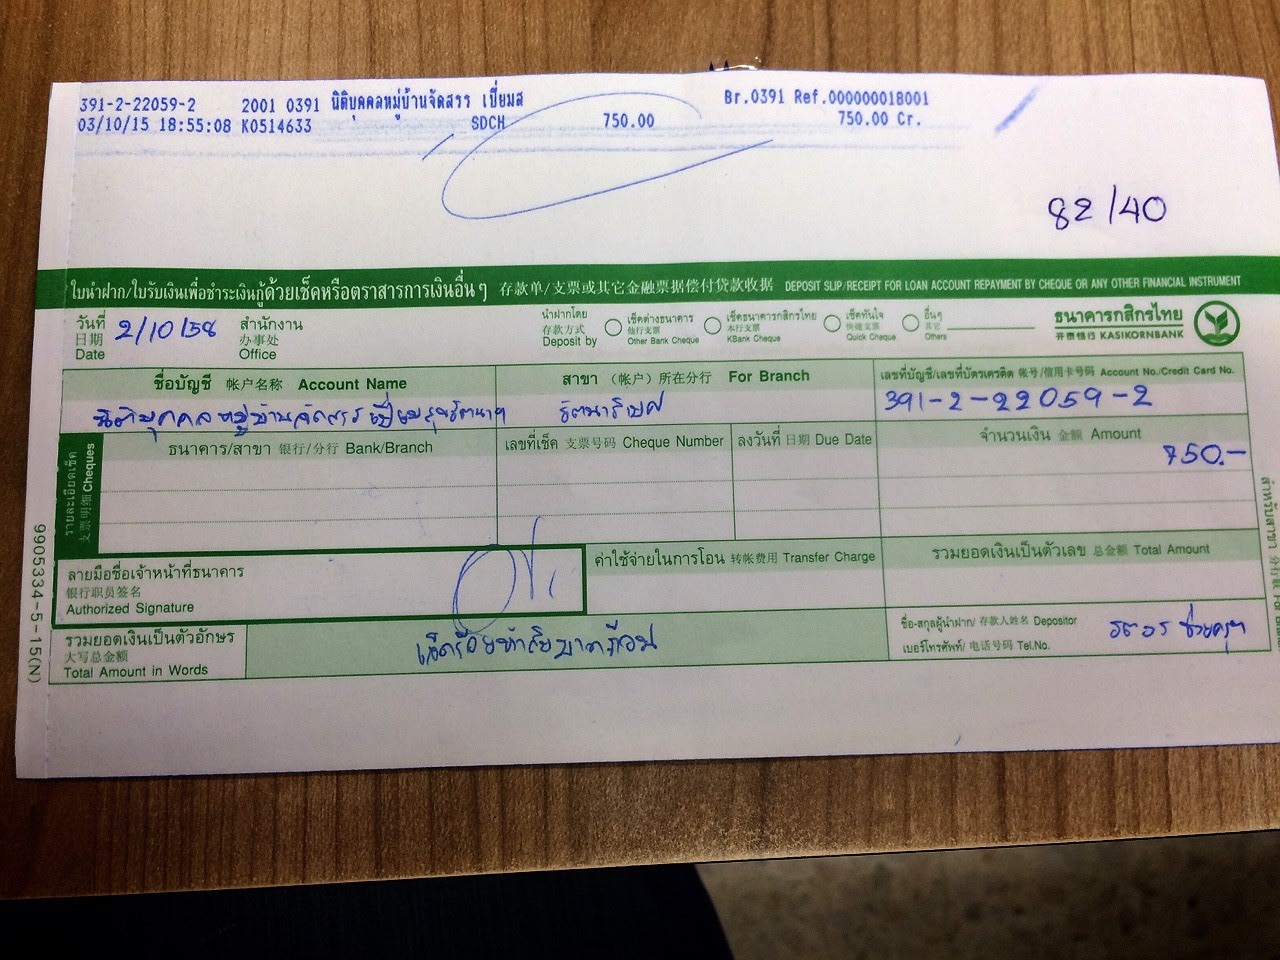 391-2-22059-2 2001 0391 นิติบุคคลหมู่บ้านจัดสรร เปี่ยมส Br.0391 Ref.000000018001
03/10/15 18:55:08 K0514633 SDCH 750.00 750.00 Cr.
82/40
ใบนำฝาก/ใบรับเงินเพื่อชำระเงินกู้ด้วยเช็คหรือตราสารการเงินอื่นๆ 存款单/支票或其它金融票据偿付贷款收据 DEPOSIT SLIP/RECEIPT FOR LOAN ACCOUNT REPAYMENT BY CHEQUE OR ANY OTHER FINANCIAL INSTRUMENT
วันที่ 日期 Date 2/10/58
สำนักงาน 办事处 Office
นำฝากโดย 存款方式 Deposit by
เช็คต่างธนาคาร 他行支票 Other Bank Cheque
เช็คธนาคารกสิกรไทย 本行支票 KBank Cheque
เช็คทันใจ 快捷支票 Quick Cheque
อื่นๆ 其它 Others
ธนาคารกสิกรไทย
开泰银行 KASIKORNBANK
ชื่อบัญชี 帐户名称 Account Name
สาขา (帐户) 所在分行 For Branch
เลขที่บัญชี/เลขที่บัตรเครดิต 帐号/信用卡号码 Account No./Credit Card No.
นิติบุคคลหมู่บ้านจัดสรร รัตนาธิเบศ 391-2-22059-2
รายละเอียดเช็ค 支票明细 Cheques
ธนาคาร/สาขา 银行/分行 Bank/Branch
เลขที่เช็ค 支票号码 Cheque Number
ลงวันที่ 日期 Due Date
จำนวนเงิน 金额 Amount
750.-
ลายมือชื่อเจ้าหน้าที่ธนาคาร
银行职员签名
Authorized Signature
ค่าใช้จ่ายในการโอน 转帐费用 Transfer Charge
รวมยอดเงินเป็นตัวเลข 总金额 Total Amount
รวมยอดเงินเป็นตัวอักษร
大写总金额
Total Amount in Words
เจ็ดร้อยห้าสิบบาทถ้วน
ชื่อ-สกุลผู้นำฝาก/存款人姓名 Depositor
เบอร์โทรศัพท์/电话号码 Tel.No.
9905334-5-15(N)